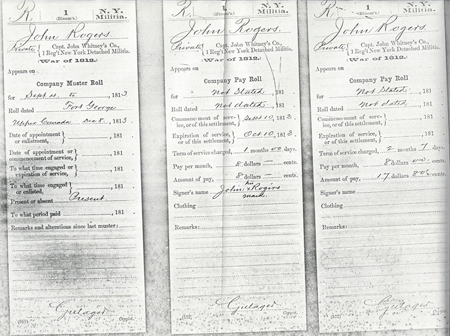 R. 1 N. Y.
(Bloom's) Militia.
John Rogers
Private, Capt. John Whitney's Co.,
1 Reg't New York Detached Militia.
(War of 1812.)
Appears on
Company Muster Roll
for Sept 10 to , 1813
Roll dated Fort George
Upper Canada Dec 8, 1813
Date of appointment
or enlistment, } , 181
Date of appointment or
commencement of service, } , 181
To what time engaged or
expiration of service, } , 181
To what time engaged
or enlisted, } , 181
Present or absent Present
To what period paid , 181
Remarks and alterations since last muster:
(557) Copyist.
R. 1 N. Y.
(Bloom's) Militia.
John Rogers
Private, Capt. John Whitney's Co.,
1 Reg't New York Detached Militia.
(War of 1812.)
Appears on
Company Pay Roll
for Not Stated, 181
Roll dated Not dated, 181
Commencement of service,
or of this settlement, } Sept 10, 1813.
Expiration of service,
or of this settlement, } Oct 10, 1813.
Term of service charged, 1 months 00 days.
Pay per month, 8 dollars — cents.
Amount of pay, 8 dollars — cents.
his
Signer's name John x Rogers
mark
Clothing
Remarks:
Copyist.
R 1 N. Y.
(Bloom's) Militia.
John Rogers
Private, Capt. John Whitney's Co.,
1 Reg't New York Detached Militia.
(War of 1812.)
Appears on
Company Pay Roll
for Not Stated, 181
Roll dated Not dated, 181
Commencement of service,
or of this settlement, } , 181
Expiration of service,
or of this settlement, } , 181
Term of service charged, 2 months 7 days.
Pay per month, 8 dollars cents.
Amount of pay, 17 dollars cents.
Signer's name
Clothing
Remarks:
Copyist.